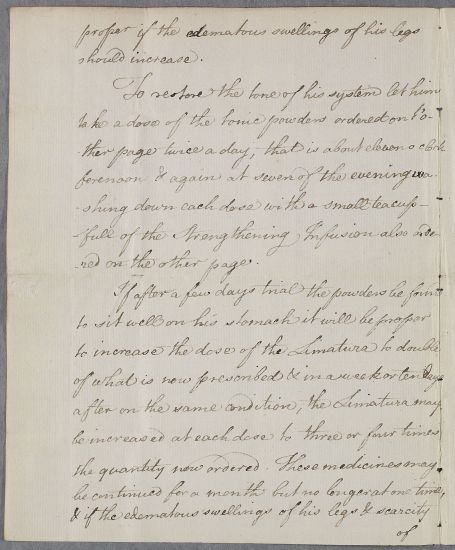 proper if the edematous swellings of his legs
should increase.
To restore the tone of his system let him
take a dose of the tonic powders ordered on t'o-
-ther page twice a day, that is about eleven o clock
forenoon & again at seven of the evening wa-
-shing down each dose with a small teacup-
-full of the Strengthening Infusion also orde-
-red on the other page.
If after a few days trial the powders be found
to sit well on his stomach it will be proper
to increase the dose of the Limatura to double
of what is now prescribed & in a week or ten days
after on the same condition, the Limatura may
be increased at each dose to three or four times
the quantity now ordered. These medicines may
be continued for a month but no longer at one time,
& if the edematous swellings of his legs & scarcity
of